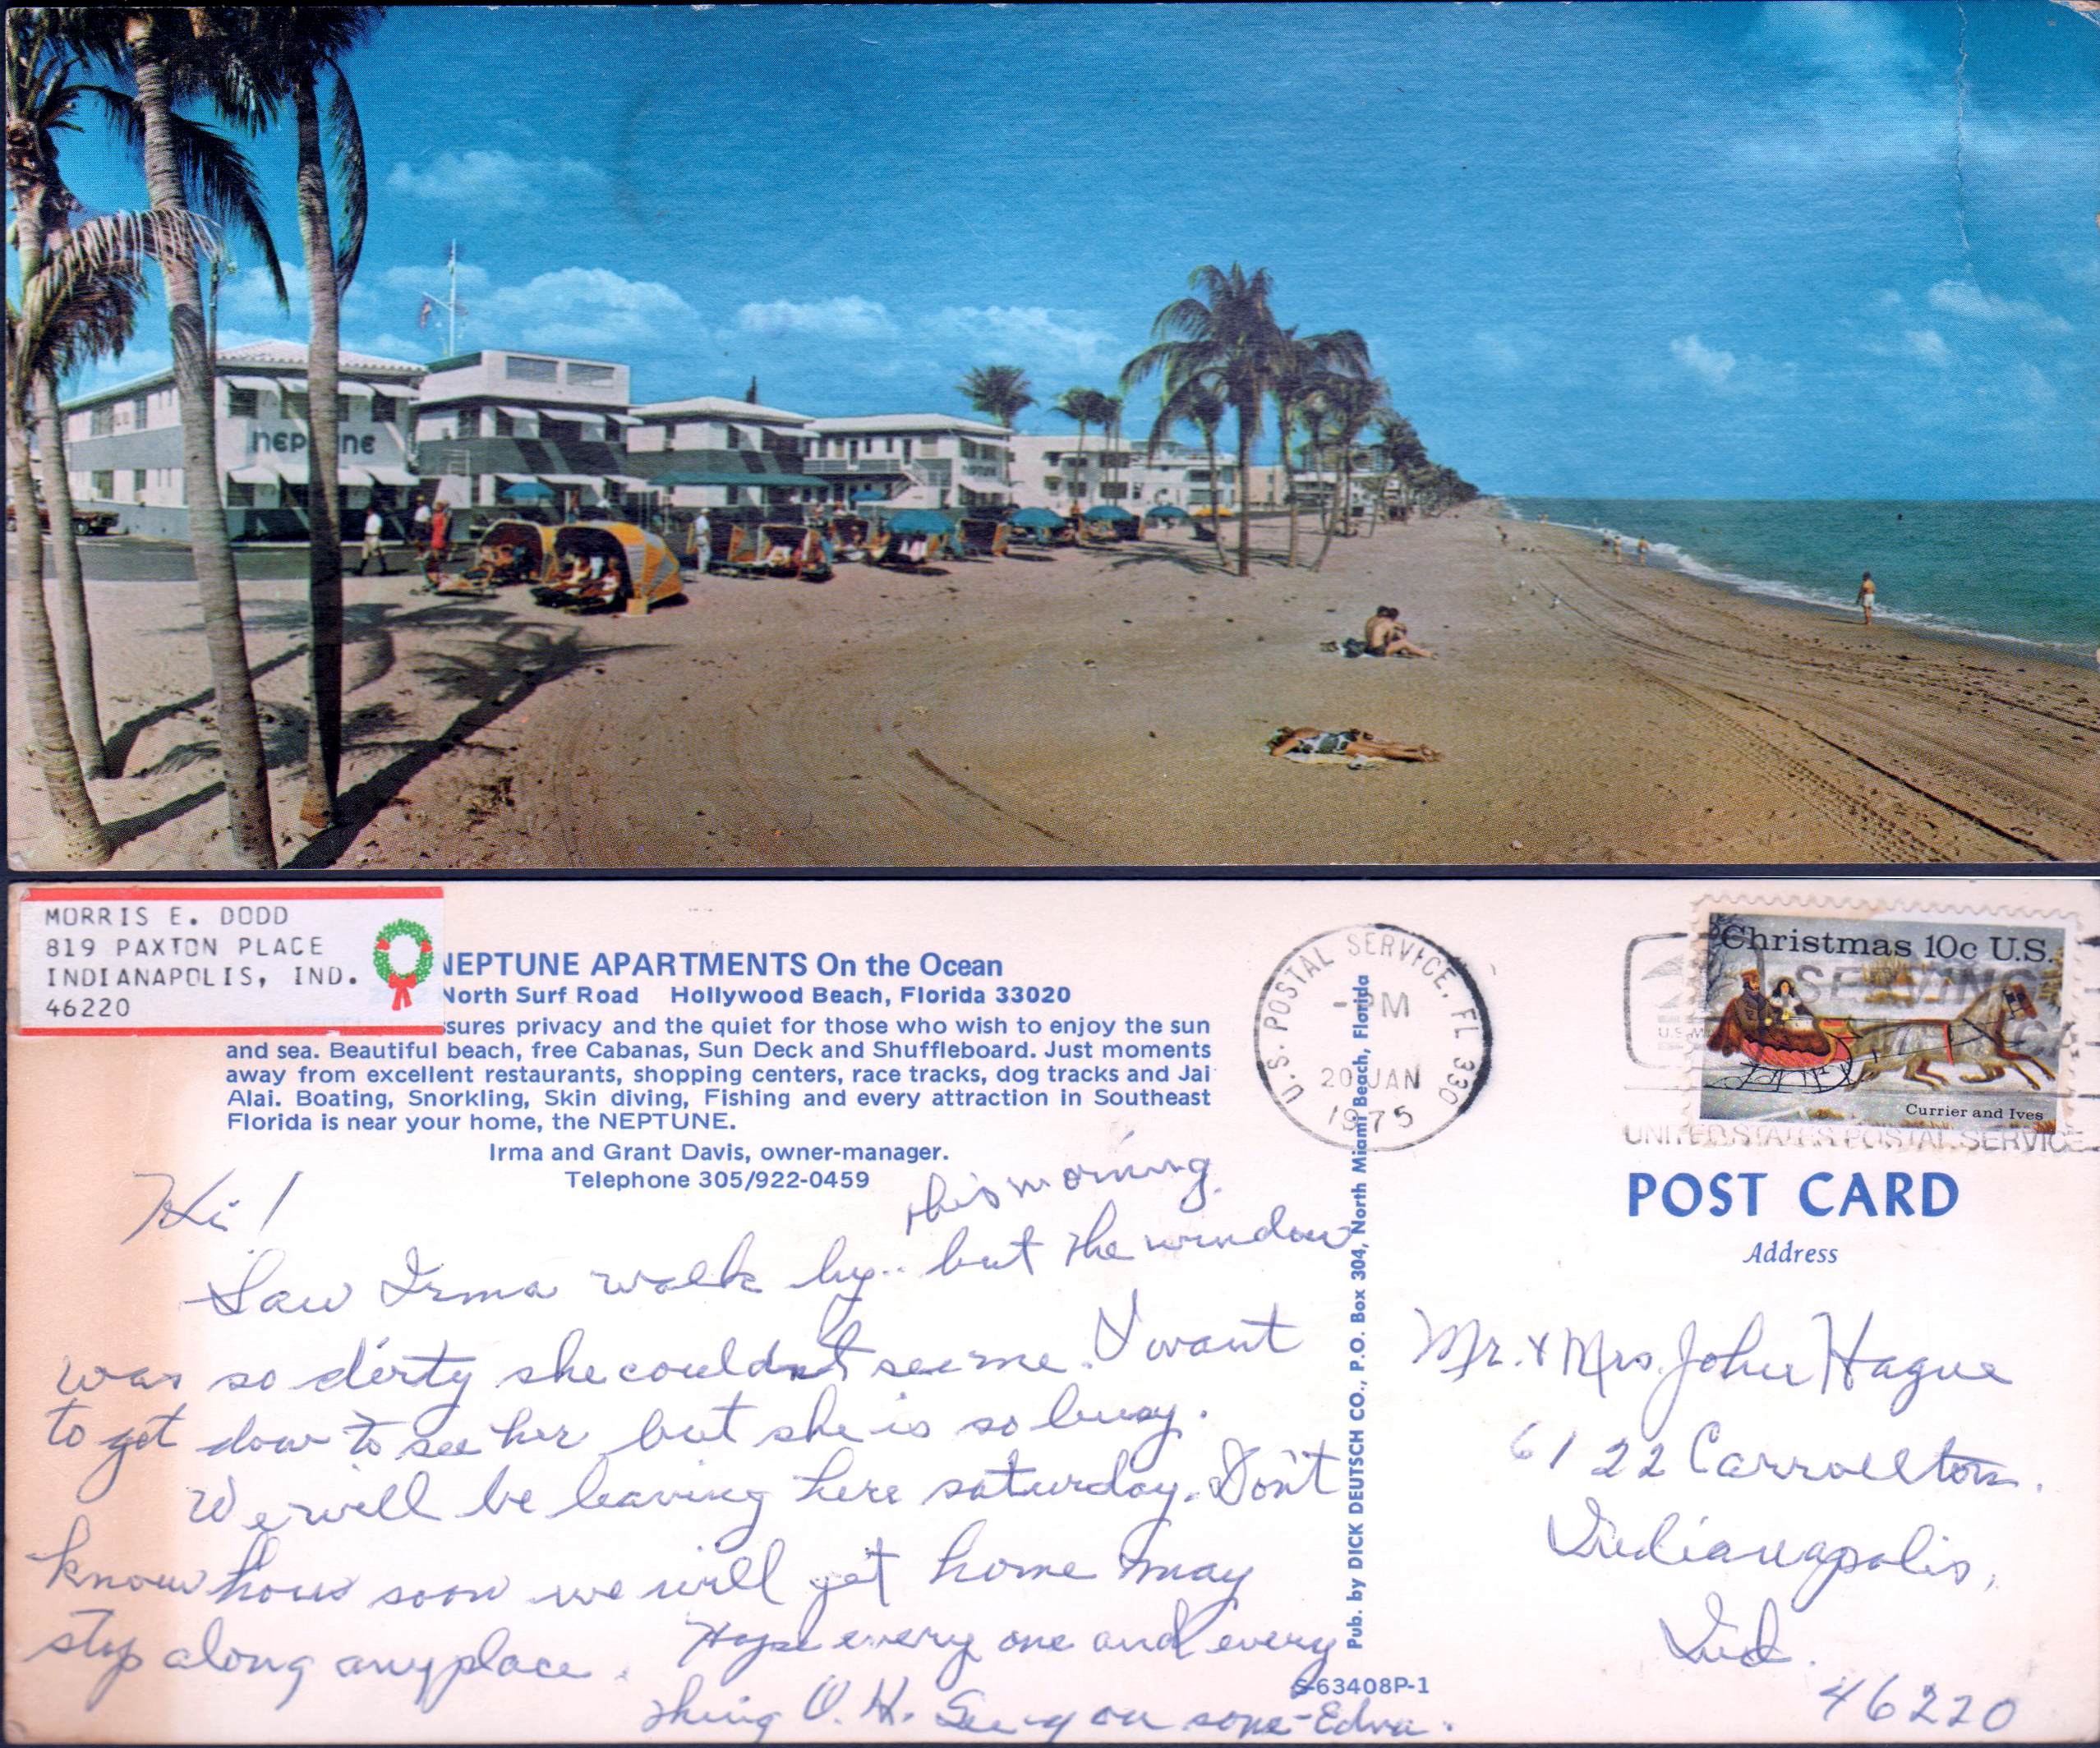 nePTUNE
nePTUNE
MORRIS E. DODD
819 PAXTON PLACE
INDIANAPOLIS, IND.
46220
NEPTUNE APARTMENTS On the Ocean
North Surf Road Hollywood Beach, Florida 33020
ssures privacy and the quiet for those who wish to enjoy the sun
and sea. Beautiful beach, free Cabanas, Sun Deck and Shuffleboard. Just moments
away from excellent restaurants, shopping centers, race tracks, dog tracks and Jai
Alai. Boating, Snorkling, Skin diving, Fishing and every attraction in Southeast
Florida is near your home, the NEPTUNE.
Irma and Grant Davis, owner-manager.
Telephone 305/922-0459
Hi!
this morning.
Saw Irma walk by.. but the window
was so dirty she couldnt see me. I want
to get down to see her but she is so busy.
We will be leaving here saturday. Don't
know how soon we will get home may
stop along anyplace. Hope every one and every
thing O.K. See you soon - Edna.
Pub. by DICK DEUTSCH CO., P.O. Box 304, North Miami Beach, Florida
S-63408P-1
U.S. POSTAL SERVICE, FL 330
PM
20 JAN
1975
Christmas 10c U.S.
SERVING
U.S.M
Currier and Ives
UNITED STATES POSTAL SERVICE
POST CARD
Address
Mr. & Mrs. John Hague
6122 Carrollton.
Indianapolis,
Ind.
46220